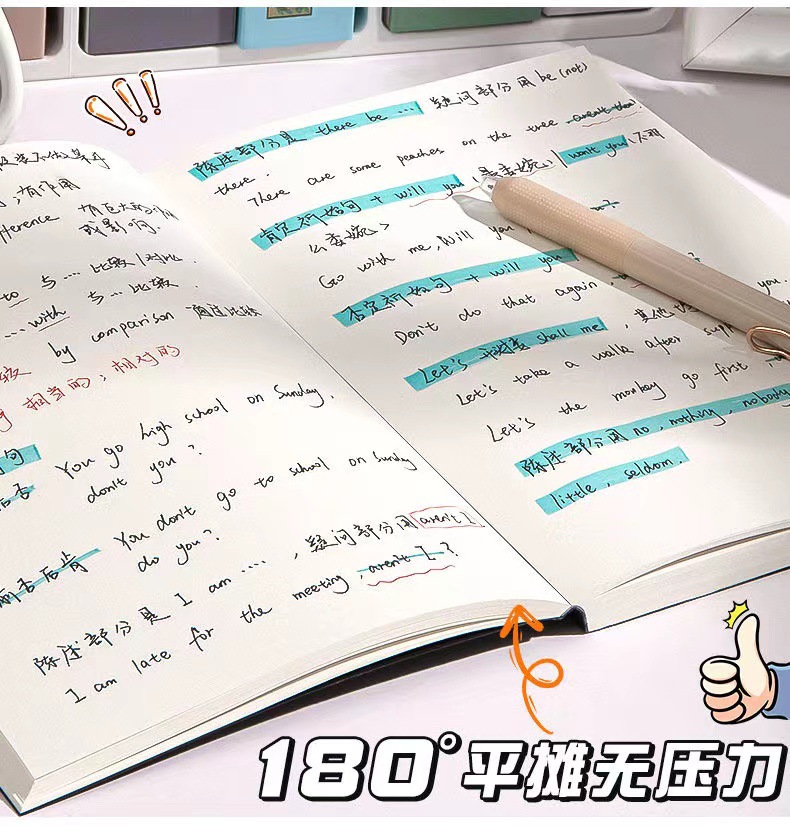 有作用
fference 有巨大的
或影响.
to 与.... 比较 | 对比.
...with 与... 比较.
by comparison 通过比较
相当的；相对的
句 You go high school on Sunday,
后否 don't you?
前否后肯 You don't go to school on Sunday
do you?
陈述部分是 I am ...., 疑问部分用 aren't I
I am late for the meeting, aren't I?
陈述部分是 there be ... 疑问部分用 be (not)
there.
There are some peaches on the tree aren't there
肯定祈始句 + will you (最委婉) | won't you (不那
么委婉>
Go with me, Will you
否定祈始句 + will you
Don't do that again,
Let's 开头 shall me, 其他 you.
Let's take a walk after supp
Let's the monkey go first
陈述部分用 no, nothing, nobody
little, seldom.
180°平摊无压力